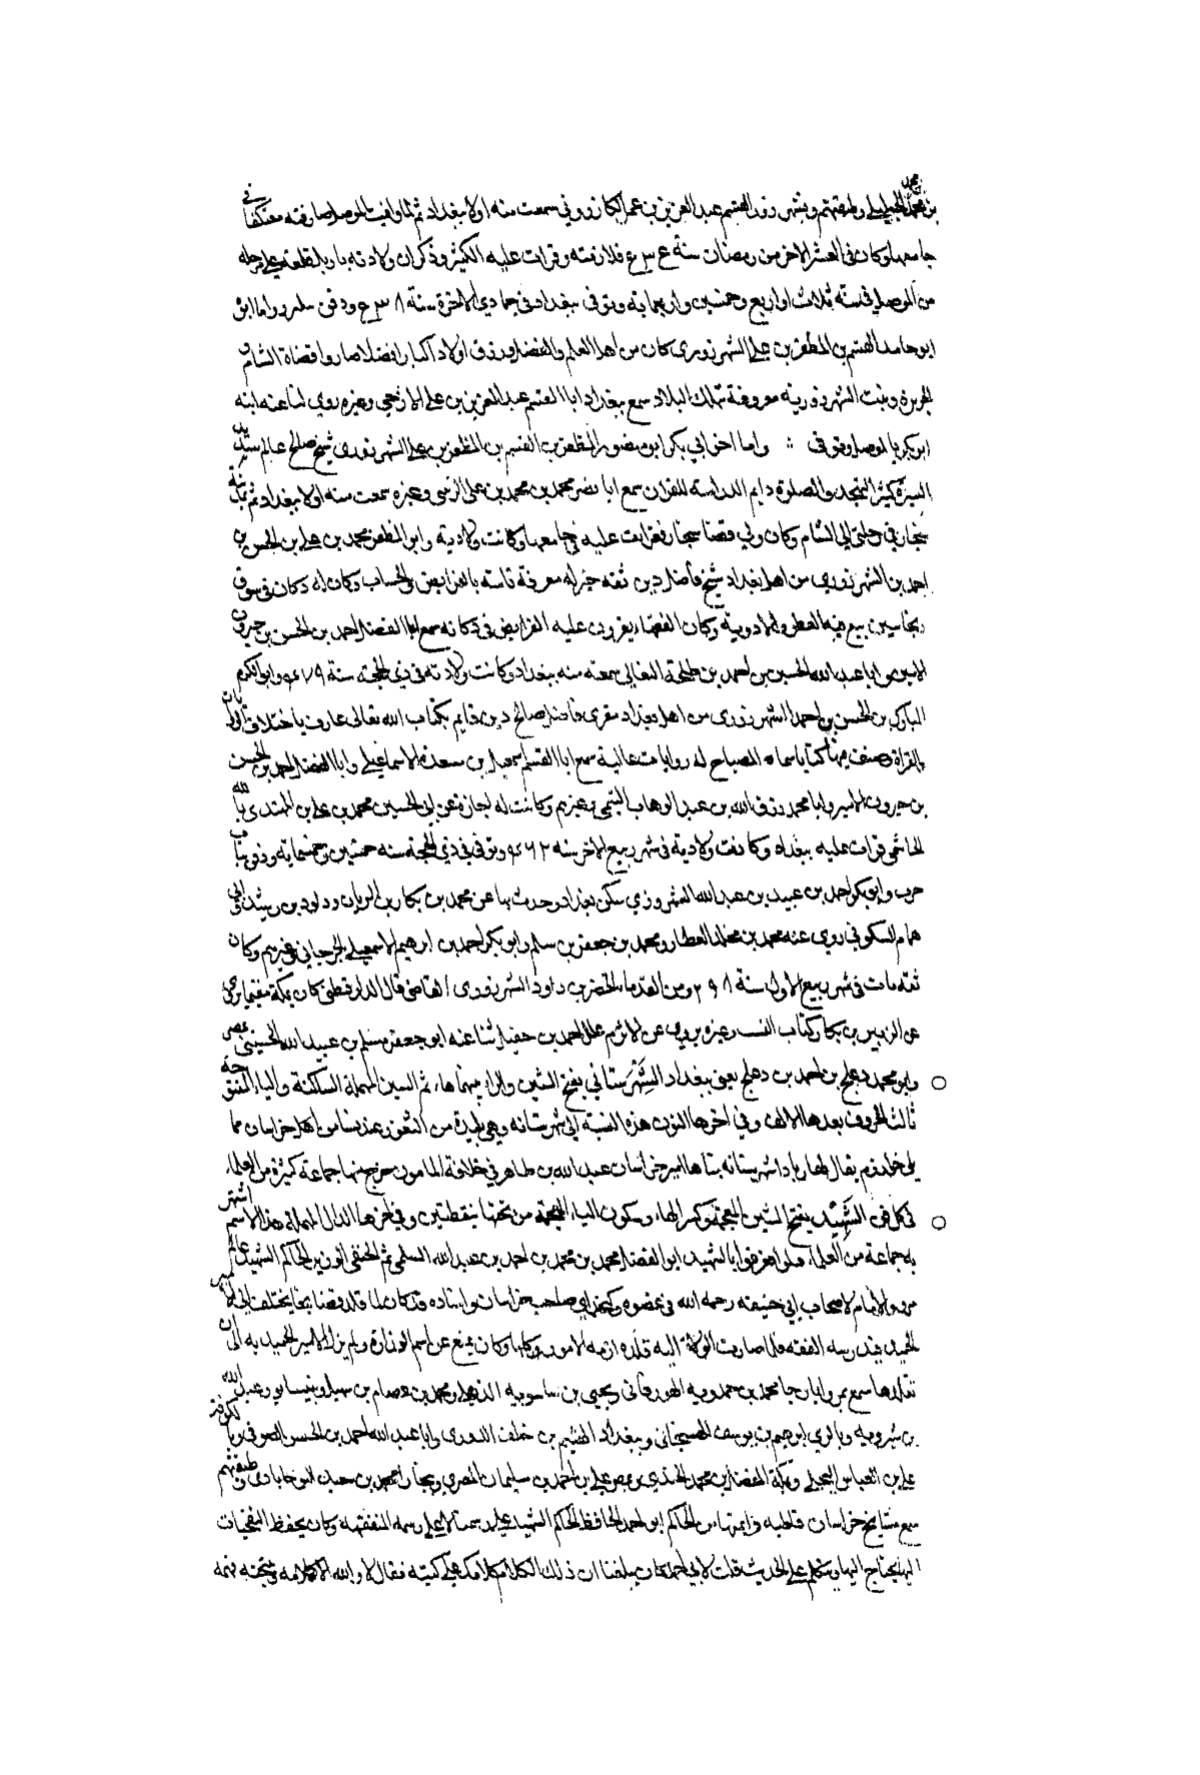 بن محمد الجيلى وطبقتهم وبشهرزور القسم عبد العزيز بن عمر الكازرونى سمعت منه اولا ببغداد ثم لما وافيت الموصل صادفته معتكفا فى
جامعها وكان فى العشر الاخر من رمضان سنة فلازمته وقرات عليه الكثير وذكر ان ولادته باربل قلعة على مرحلة
من الموصل فى سنة ثلاث او اربع وخمسين واربعماية وتوفى ببغداد فى جمادى الاخرة سنة ودفن واما ابوه
ابو حامد القسم بن المظفر بن على الشهرزورى كان من اهل العلم والفضل ورزق اولادا كبارا فضلا صاروا قضاة الشام و
الجزيرة وبيت الشهرزورية معروفة بتلك البلاد سمع ببغداد ابا القسم عبد العزيز بن على الازجى وغيره روى لنا عنه ابنه
ابو بكر بالموصل وتوفى واما اخو ابى بكر ابو منصور المظفر بن القسم بن المظفر بن على الشهرزورى شيخ صالح عالم سديد
السيرة كثير التهجد والصلوة دايم الدراسة للقران سمع ابا نصر محمد بن محمد بن على الزينبى وغيره سمعت منه اولا ببغداد ثم بمدينة
سنجار فى رحلتى الى الشام وكان ولى قضا سنجار فقرات عليه فى جامعها وكانت ولادته وابو المظفر محمد بن على بن الحسن بن
احمد بن الشهرزورى من اهل بغداد شيخ فاضل دين ثقة خير له معرفة تامة بالفرايض والحساب وكان له دكان فى سوق
يبيع فيه العطر والادوية وكان الفقهاء يقرون عليه الفرايض فى دكانه سمع ابا الفضل احمد بن الحسن بن خيرون
الامين وابا عبد الله الحسين بن احمد بن طلحة النعالى سمعت منه ببغداد وكانت ولادته فى ذى الحجة سنة وابو الكرم
المبارك بن الحسن بن احمد الشهرزورى من اهل بغداد مقرى فاضل صالح دين قايم بكتاب الله تعالى عارف باختلاف الروايات
والقراة وصنف فيها كتابا سماه المصباح له روايات عالية سمع ابا القسم اسمعيل بن مسعدة الاسماعيلى وابا الفضل احمد بن الحسن
بن خيرون الامين وابا محمد رزق الله بن عبد الوهاب التميمى وغيرهم وكانت له اجازة عن ابى الحسين محمد بن على بن المهتدى بالله
الهاشمى قرات عليه ببغداد وكانت ولادته فى شهر ربيع الاخر سنة وتوفى فى ذى الحجة سنة خمسين وخمسماية ودفن بباب
حرب وابو بكر احمد بن عبيد بن عبد الله الشهرزورى سكن بغداد وحدث بها عن محمد بن بكار بن الريان وداود بن رشيد وابى
همام السكونى روى عنه محمد بن مخلد العطار ومحمد بن جعفر بن سلم وابو بكر احمد بن ابرهيم الاسمعيلى الجرجانى وغيرهم وكان
ثقة مات فى شهر ربيع الاول سنة ومن القدماء الخضر بن داود الشهرزورى القاضى قال الدارقطنى كان بمكة مقيما يروى
عن الزبير بن بكار كتاب النسب وغيره يروى عن الاثرم علل احمد بن حنبل ثنا عنه ابو جعفر مسلم بن عبيد الله الحسينى بمصر
وابو محمد دعلج بن احمد بن دعلج يعنى ببغداد الشهرستانى بفتح الشين والراء بينهما هاء ثم السين المهملة الساكنة والتاء المفتوحة
ثالث الحروف بعدها الالف وفى اخرها النون هذه النسبة الى شهرستانة وهى بليدة من الثغور عند نسا من اهل خراسان مما
يلى خوارزم يقال لها رباط شهرستانه بناها امير خراسان عبد الله بن طاهر فى خلافة المامون خرج منها جماعة كثيرة من العلماء
فى كل فن الشهيد بفتح الشين المعجمة وكسر الهاء وسكون الياء المعجمة من تحتها بنقطتين وفى اخرها الدال المهملة هذا الاسم اشتهر
به جماعة من العلماء ابو الفضل محمد بن محمد بن احمد بن عبد الله السلمى ثم الحنفى الوزير الحاكم الشهيد عالم
مرو والامام لاصحاب ابى حنيفة رحمه الله فى عصره صاحب خراسان واستاده قد كان لما قلد قضا بخارا يختلف الى الامير
الحميد فيدرسه الفقه فلما صارت الولاية اليه قلده ازمة الامور كلها وكان يمتنع عن اسم الوزارة ولم يزل الامير الحميد به الى ان
تقلدها سمع بمرو ابا رجا محمد بن حمدويه الهورقانى ويحيى بن ساسويه الذهلى ومحمد بن عصام بن سهيل وبنيسابور عبد الله
بن شيرويه وبالرى ابرهيم بن يوسف الهسنجانى وببغداد الهيثم بن خلف الدورى وابا عبد الله احمد بن الحسن الصوفى وبالكوفة
على بن العباس البجلى وبمكة المفضل بن محمد الجندى وبمصر على بن احمد بن سليمان المصرى وببخارا محمد بن سعيد النوجابادى وطبقتهم
سمع مشايخ خراسان قاطبة وايمتها من الحاكم ابو احمد الحافظ الحاكم الشهيد على رسمه المتفقهة وكان يحفظ الفقهيات
اليها يحتاج اليها ويتكلم على الحديث قلت لابى احمد كان يبلغنا ان ذلك الكلام كلامك على كتبه فقال لا والله الا كلامه ونتيجة فهمه